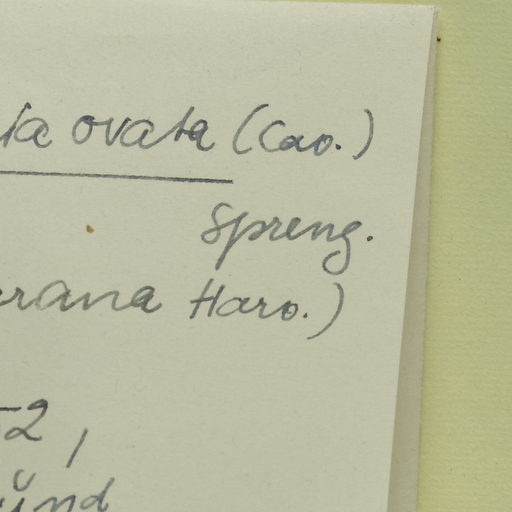 ia ovata (Cav.)
Spreng.
rana Harv.)
2,
ünd